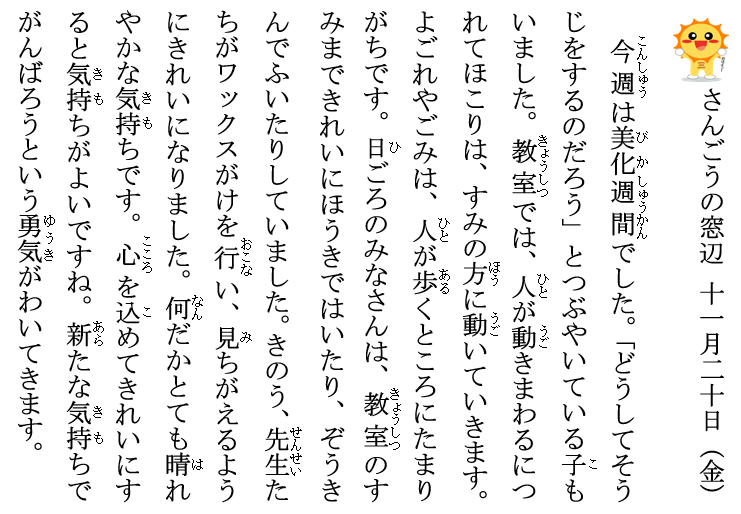 さんごうの窓辺 十一月二十日（金）
今週は美化週間でした。「どうしてそう
じをするのだろう」とつぶやいている子も
いました。教室では、人が動きまわるにつ
れてほこりは、すみの方に動いていきます。
よごれやごみは、人が歩くところにたまり
がちです。日ごろのみなさんは、教室のす
みまできれいにほうきではいたり、ぞうき
んでふいたりしていました。きのう、先生た
ちがワックスがけを行い、見ちがえるよう
にきれいになりました。何だかとても晴れ
やかな気持ちです。心を込めてきれいにす
ると気持ちがよいですね。新たな気持ちで
がんばろうという勇気がわいてきます。